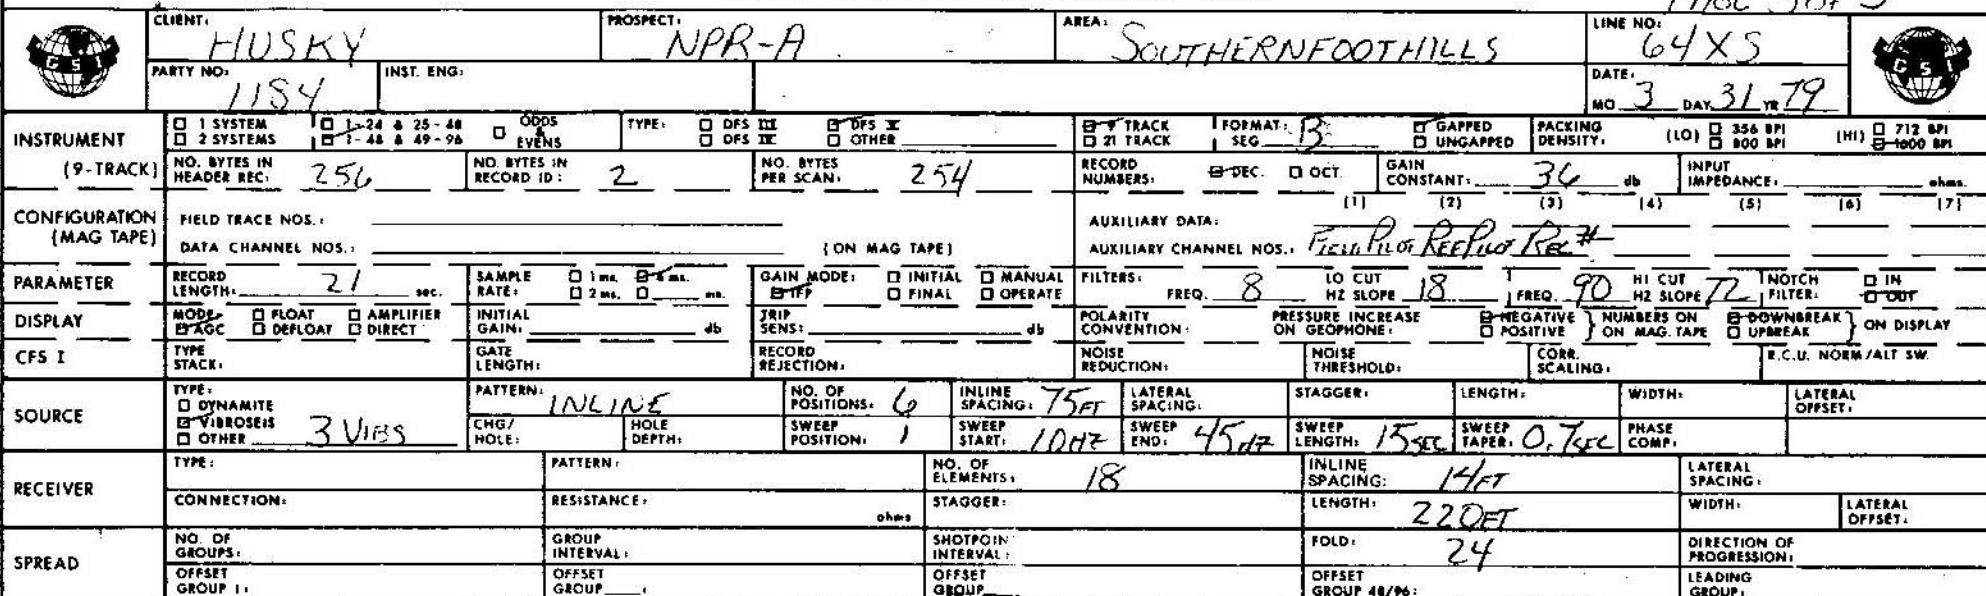 CLIENT: HUSKY PROSPECT: NPR-A AREA: SOUTHERNFOOTHILLS LINE NO: 64XS
GSI GSI
PARTY NO: 1184 INST. ENG: DATE: MO 3 DAY 31 YR 79
INSTRUMENT (9-TRACK)
1 SYSTEM 1-24 & 25-48 ODDS & EVENS TYPE: DFS III DFS V 9 TRACK FORMAT: B GAPPED PACKING DENSITY: (LO) 356 BPI (HI) 712 BPI
2 SYSTEMS 1-48 & 49-96 DFS IV OTHER 21 TRACK SEG UNGAPPED 800 BPI 1600 BPI
NO. BYTES IN HEADER REC: 256 NO. BYTES IN RECORD ID: 2 NO. BYTES PER SCAN: 254 RECORD NUMBERS: DEC. OCT. GAIN CONSTANT: 36 db INPUT IMPEDANCE: ohms.
CONFIGURATION (MAG TAPE)
FIELD TRACE NOS.: AUXILIARY DATA: (1) (2) (3) (4) (5) (6) (7)
DATA CHANNEL NOS.: (ON MAG TAPE) AUXILIARY CHANNEL NOS.: FIELD PILOT REF PILOT REC #
PARAMETER RECORD LENGTH: 21 sec. SAMPLE RATE: 1 ms. 4 ms. 2 ms. ms. GAIN MODE: INITIAL MANUAL IFP FINAL OPERATE FILTERS: FREQ. 8 LO CUT HZ SLOPE 18 FREQ. 90 HI CUT HZ SLOPE 72 NOTCH FILTER: IN OUT
DISPLAY MODE: FLOAT AMPLIFIER AGC DEFLOAT DIRECT INITIAL GAIN: db TRIP SENS: db POLARITY CONVENTION: PRESSURE INCREASE ON GEOPHONE: NEGATIVE POSITIVE NUMBERS ON ON MAG. TAPE DOWNBREAK UPBREAK ON DISPLAY
CFS I TYPE STACK: GATE LENGTH: RECORD REJECTION: NOISE REDUCTION: NOISE THRESHOLD: CORR. SCALING: R.C.U. NORM/ALT SW.
SOURCE TYPE: DYNAMITE VIBROSEIS OTHER 3 VIBS
PATTERN: INLINE NO. OF POSITIONS: 6 INLINE SPACING: 75FT LATERAL SPACING: STAGGER: LENGTH: WIDTH: LATERAL OFFSET:
CHG/HOLE: HOLE DEPTH: SWEEP POSITION: 1 SWEEP START: 10HZ SWEEP END: 45HZ SWEEP LENGTH: 15SEC SWEEP TAPER: 0.7SEC PHASE COMP:
RECEIVER TYPE: PATTERN: NO. OF ELEMENTS: 18 INLINE SPACING: 14FT LATERAL SPACING:
CONNECTION: RESISTANCE: ohms STAGGER: LENGTH: 220FT WIDTH: LATERAL OFFSET:
SPREAD NO. OF GROUPS: GROUP INTERVAL: SHOTPOIN INTERVAL: FOLD: 24 DIRECTION OF PROGRESSION:
OFFSET GROUP 1: OFFSET GROUP : OFFSET GROUP OFFSET GROUP 48/96: LEADING GROUP: